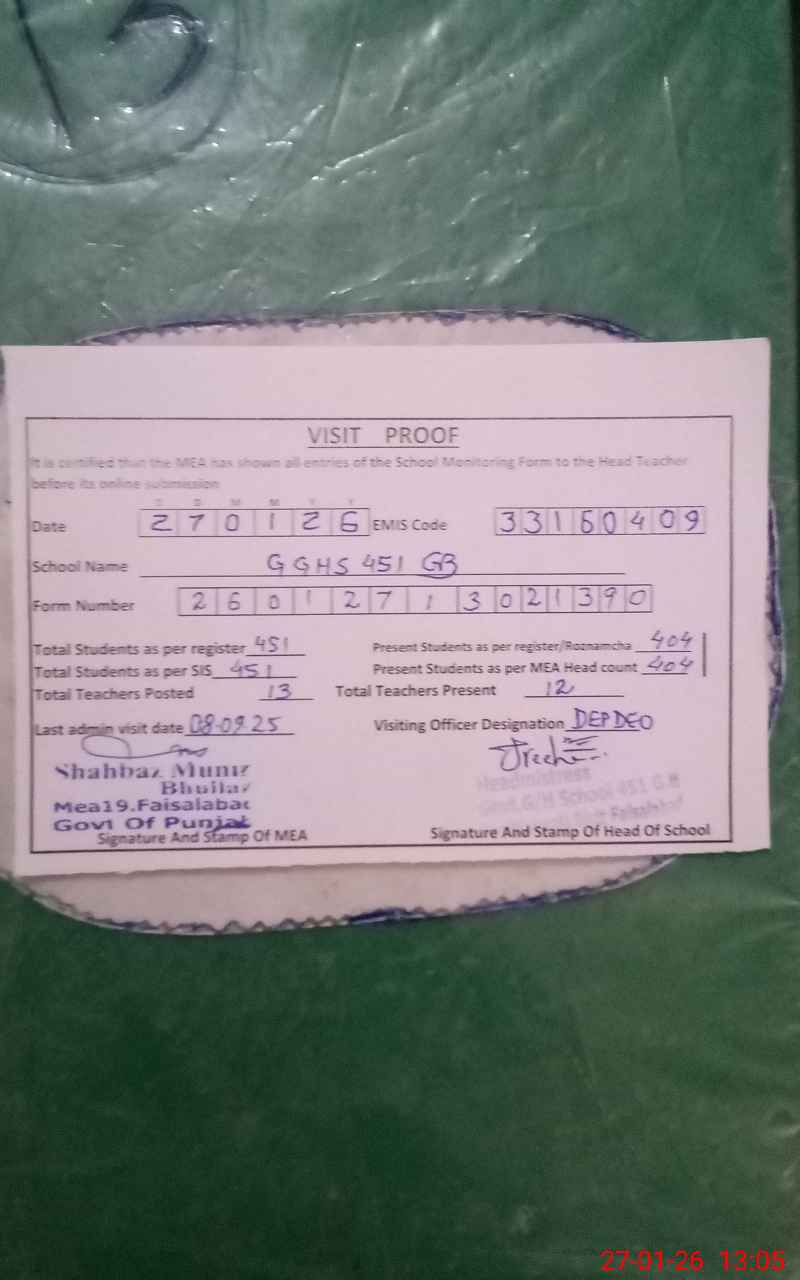 B
VISIT PROOF
It is certified that the MEA has shown all entries of the School Monitoring Form to the Head Teacher
before its online submission
D D M M Y Y
Date 2 7 0 1 2 6 EMIS Code 3 3 1 6 0 4 0 9
School Name G G H S 451 GB
Form Number 2 6 0 1 2 7 1 3 0 2 1 3 9 0
Total Students as per register 451 Present Students as per register/Roznamcha 404
Total Students as per SIS 451 Present Students as per MEA Head count 404
Total Teachers Posted 13 Total Teachers Present 12
Last admin visit date 08-09.25 Visiting Officer Designation DEPDEO
Shahbaz Munir
Mea19.Faisalabad
Govt Of Punjab
Headmistress
Govt.G/H School 451 G.B
Faisalabad
Signature And Stamp Of MEA Signature And Stamp Of Head Of School
27-01-26 13:05